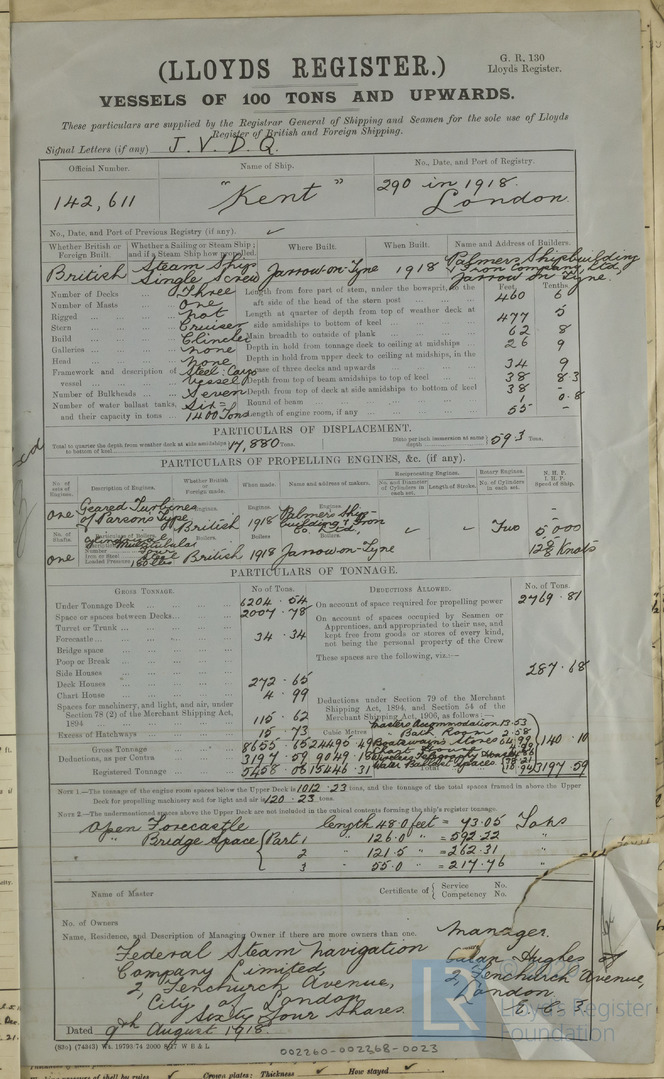 (LLOYDS REGISTER.)
G. R. 130
Lloyds Register.
VESSELS OF 100 TONS AND UPWARDS.
These particulars are supplied by the Registrar General of Shipping and Seamen for the sole use of Lloyds
Register of British and Foreign Shipping.
Signal Letters (if any) J. V. D. Q.
Official Number. Name of Ship. No., Date, and Port of Registry.
142,611 "Kent" 290 in 1918. London
No., Date, and Port of Previous Registry (if any).
Whether British or Foreign Built. Whether a Sailing or Steam Ship; and if a Steam Ship how propelled. Where Built. When Built. Name and Address of Builders.
British Steam Ship Single Screw Jarrow-on-Tyne 1918 Palmers Shipbuilding & Iron Company, Ltd Jarrow on Tyne.
Feet. Tenths.
Number of Decks Three Length from fore part of stem, under the bowsprit, to the aft side of the head of the stern post 460 6
Number of Masts One
Rigged not Length at quarter of depth from top of weather deck at side amidships to bottom of keel 477 5
Stern Cruiser
Build Clincher Main breadth to outside of plank 62 8
Galleries none Depth in hold from tonnage deck to ceiling at midships 26 9
Head none Depth in hold from upper deck to ceiling at midships, in the case of three decks and upwards 34 9
Framework and description of vessel Steel: Cargo vessel Depth from top of beam amidships to top of keel 38 83
Number of Bulkheads Seven Depth from top of deck at side amidships to bottom of keel 38 -
Number of water ballast tanks, and their capacity in tons Six = 1400 Tons Round of beam 1 0.8
Length of engine room, if any 55 -
PARTICULARS OF DISPLACEMENT.
Total to quarter the depth from weather deck at side amidships to bottom of keel 17,880 Tons. Ditto per inch immersion at same depth 59 3 Tons.
PARTICULARS OF PROPELLING ENGINES, &c. (if any).
No. of sets of Engines. Description of Engines. Whether British or Foreign made. When made. Name and address of makers. Reciprocating Engines. No. and Diameter of Cylinders in each set. Length of Stroke. Rotary Engines. No. of Cylinders in each set. N. H. P. I. H. P. Speed of Ship.
One Geared Turbines of Parsons Type Engines. British Engines. 1918 Engines Palmers Ship-building & Iron Co. Ltd, Two 5000
No. of Shafts. Particulars of Boilers. Boilers Boilers Boilers
One Number Four Iron or Steel Steel Loaded Pressure British 1918 Jarrow-on-Tyne Knots
PARTICULARS OF TONNAGE.
GROSS TONNAGE. No of Tons. DEDUCTIONS ALLOWED. No. of Tons.
Under Tonnage Deck 6204.54 On account of space required for propelling power 2769.81
Space or spaces between Decks 2007.78 On account of spaces occupied by Seamen or Apprentices, and appropriated to their use, and kept free from goods or stores of every kind, not being the personal property of the Crew
Turret or Trunk
Forecastle 34.34
Bridge space These spaces are the following, viz.:—
Poop or Break
Side Houses 287.68
Deck Houses 272.65
Chart House 4.99 Deductions under Section 79 of the Merchant Shipping Act, 1894, and Section 54 of the Merchant Shipping Act, 1906, as follows:—
Spaces for machinery, and light, and air, under Section 78 (2) of the Merchant Shipping Act, 1894 115.62
Masters Accommodation 13.53
Excess of Hatchways 15.73 Cubic Metres Bath Room 2.58
Gross Tonnage 8655.65 24495.49 Boatswain's Stores 140.10
Deductions, as per Contra 3197.59 9049.18
Registered Tonnage 5458.06 15446.31 Water Ballast Spaces Total 3197.59
NOTE 1.—The tonnage of the engine room spaces below the Upper Deck is 1012.23 tons, and the tonnage of the total spaces framed in above the Upper
Deck for propelling machinery and for light and air is 120.23 tons.
NOTE 2.—The undermentioned spaces above the Upper Deck are not included in the cubical contents forming the ship's register tonnage.
Open Forecastle length 48.0 feet = 93.05 Tons
" Bridge Space Part 1 " 126.0 " = 592.22 "
2 " 121.5 " = 262.31 "
3 " 55.0 " = 217.76 "
Name of Master Certificate of Service No. Competency No.
No. of Owners
Name, Residence, and Description of Managing Owner if there are more owners than one.
Federal Steam Navigation
Company Limited,
2, Fenchurch Avenue,
City of London
Sixty four Shares.
Manager.
Hughes of
2, Fenchurch Avenue,
London
E. C. 3
Dated 9th August 1918.
(83o) (74343) Wt. 19798/74 2000 8/17 W B & L
002260-002268-0023
LR
Lloyd's Register
Foundation